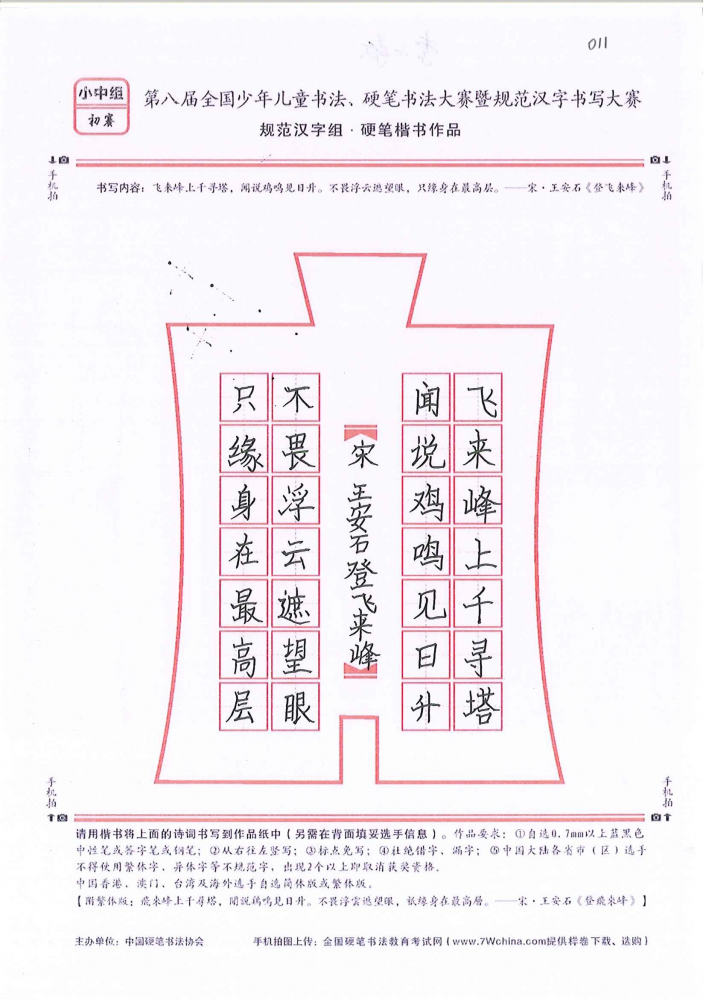 011
小中组
初赛
第八届全国少年儿童书法、硬笔书法大赛暨规范汉字书写大赛
规范汉字组·硬笔楷书作品
手机拍
手机拍
书写内容：飞来峰上千寻塔，闻说鸡鸣见日升。不畏浮云遮望眼，只缘身在最高层。——宋·王安石《登飞来峰》
飞来峰上千寻塔
闻说鸡鸣见日升
宋 王安石登飞来峰
不畏浮云遮望眼
只缘身在最高层
手机拍
手机拍
请用楷书将上面的诗词书写到作品纸中（另需在背面填妥选手信息）。作品要求：①自选0.7mm以上蓝黑色
中性笔或签字笔或钢笔；②从右往左竖写；③标点免写；④杜绝错字、漏字；⑤中国大陆各省市（区）选手
不得使用繁体字、异体字等不规范字，出现2个以上即取消获奖资格。
中国香港、澳门、台湾及海外选手自选简体版或繁体版。
【附繁体版：飛來峰上千尋塔，聞說鷄鳴見日昇。不畏浮雲遮望眼，祇緣身在最高層。——宋·王安石《登飛來峰》】
主办单位：中国硬笔书法协会
手机拍图上传：全国硬笔书法教育考试网（www.7Wchina.com提供样卷下载、选购）